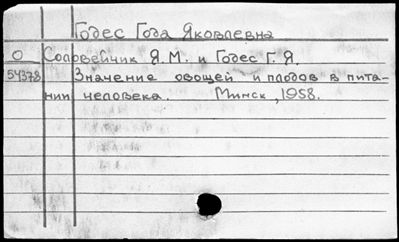 Годес Года Яковлевна
О Соловейчик Я. М. и Годес Г. Я.
54378 Значение овощей и плодов в пита-
нии человека. Минск, 1958.